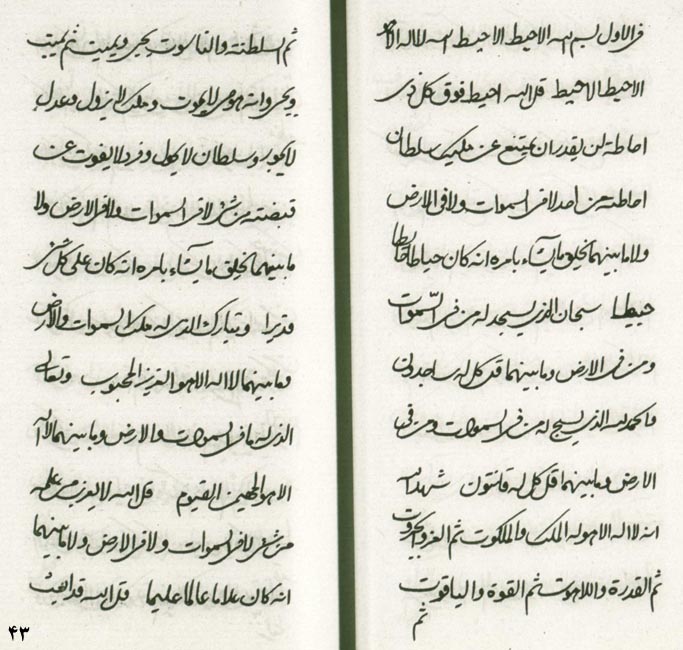 فی الاول بسم الله الاحیط الاحیط الله لا اله الا هو
الاحیط الاحیط قل الله احیط فوق کل ذی
احاطة لن یقدر ان یمتنع عن ملیک سلطان
احاطته من احد لا فی السموات و لا فی الارض
ولا ما بینهما یخلق ما یشاء بامره انه کان حیاطا حائطا
حیطا سبحان الذی یسجد له من فی السموات
ومن فی الارض وما بینهما قل کل له ساجدون
والحمد لله الذی یسبح له من فی السموات ومن فی
الارض وما بینهما قل کل له قانتون شهد الله
انه لا اله الا هو له الملک والملکوت ثم العز والجبروت
ثم القدرة واللاهوت ثم القوة والیاقوت
ثم
ثم السلطنة والناسوت یحیی ویمیت ثم یمیت
ویحیی وانه هو حی لا یموت وملک لا یزول وعدل
لا یجور وسلطان لا یحول وفرد لا یفوت عن
قبضته من شیء لا فی السموات ولا فی الارض ولا
ما بینهما یخلق ما یشاء بامره انه کان علی کل شیء
قدیرا وتبارک الذی له ملک السموات والارض
وما بینهما لا اله الا هو العزیز المحبوب وتعالی
الذی له ما فی السموات والارض وما بینهما لا اله
الا هو المهیمن القیوم قل الله لا یعزب من علمه
من شیء لا فی السموات ولا فی الارض ولا ما بینهما
انه کان علاما عالما علیما قل الله قد
۴۳